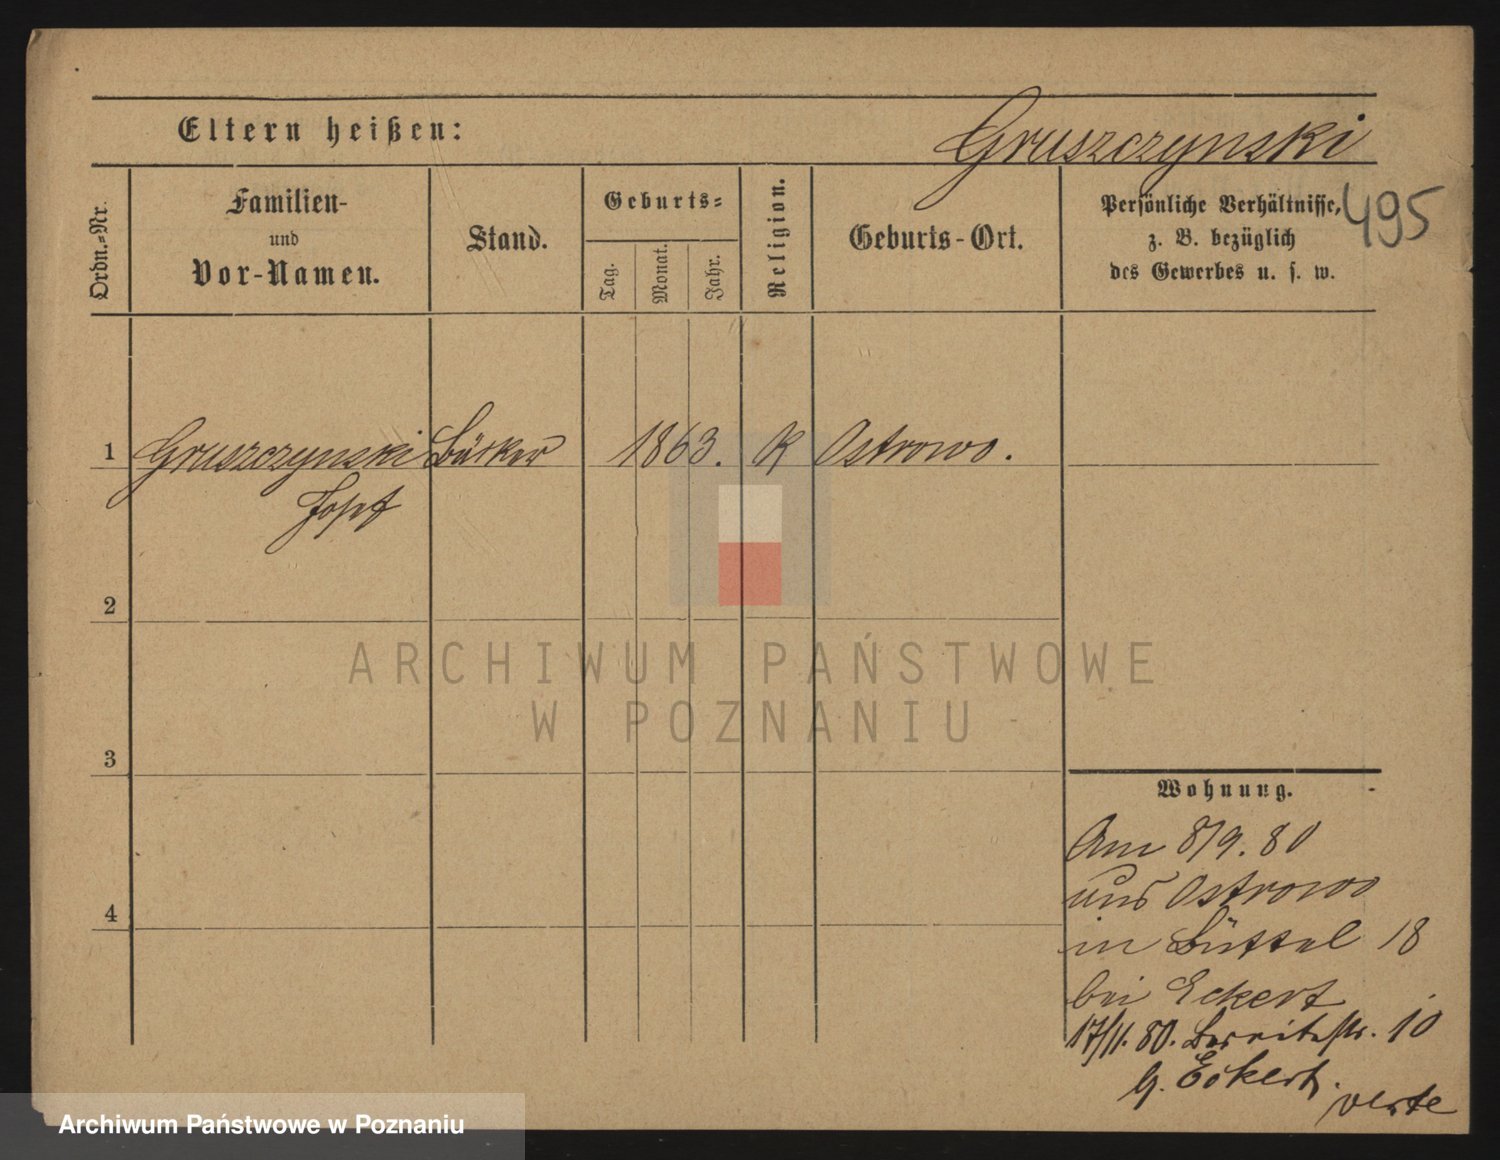 Eltern heißen:
Gruszczynski
495
Ordn.=Nr.
Familien-
und
Vor-Namen.
Stand.
Geburts=
Tag.
Monat.
Jahr.
Religion.
Geburts-Ort.
Persönliche Verhältnisse,
z. B. bezüglich
des Gewerbes u. s. w.
1 Gruszczynski 1863. K Ostrowo.
Josef
2
ARCHIWUM PAŃSTWOWE
W POZNANIU
3
Wohnung.
Am 8/9. 80
aus Ostrowo
4
in Büttel 18
bei Eckert
17/11. 80. Breitestr. 10
b. Eckert.
verte
Archiwum Państwowe w Poznaniu